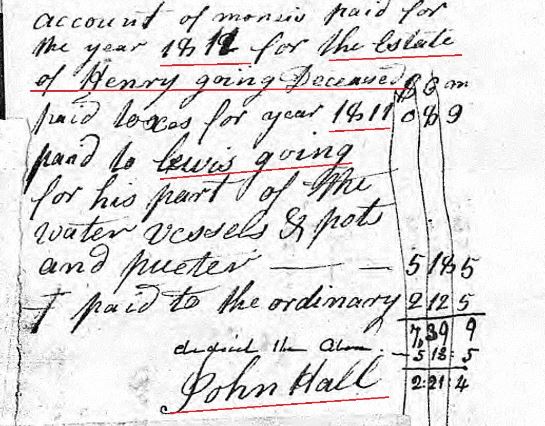 account of monsis paid for
the year 1812 for the Estate
of Henry going Deceased $ c m
paid taxes for year 1811 0 8 9
paid to lewis going
for his part of the
water vessels & pots
and pueter — — — 5 18 5
I paid to the ordinary 2 12 5
7 39 9
the 5 18 5
John Hall 2 21 4